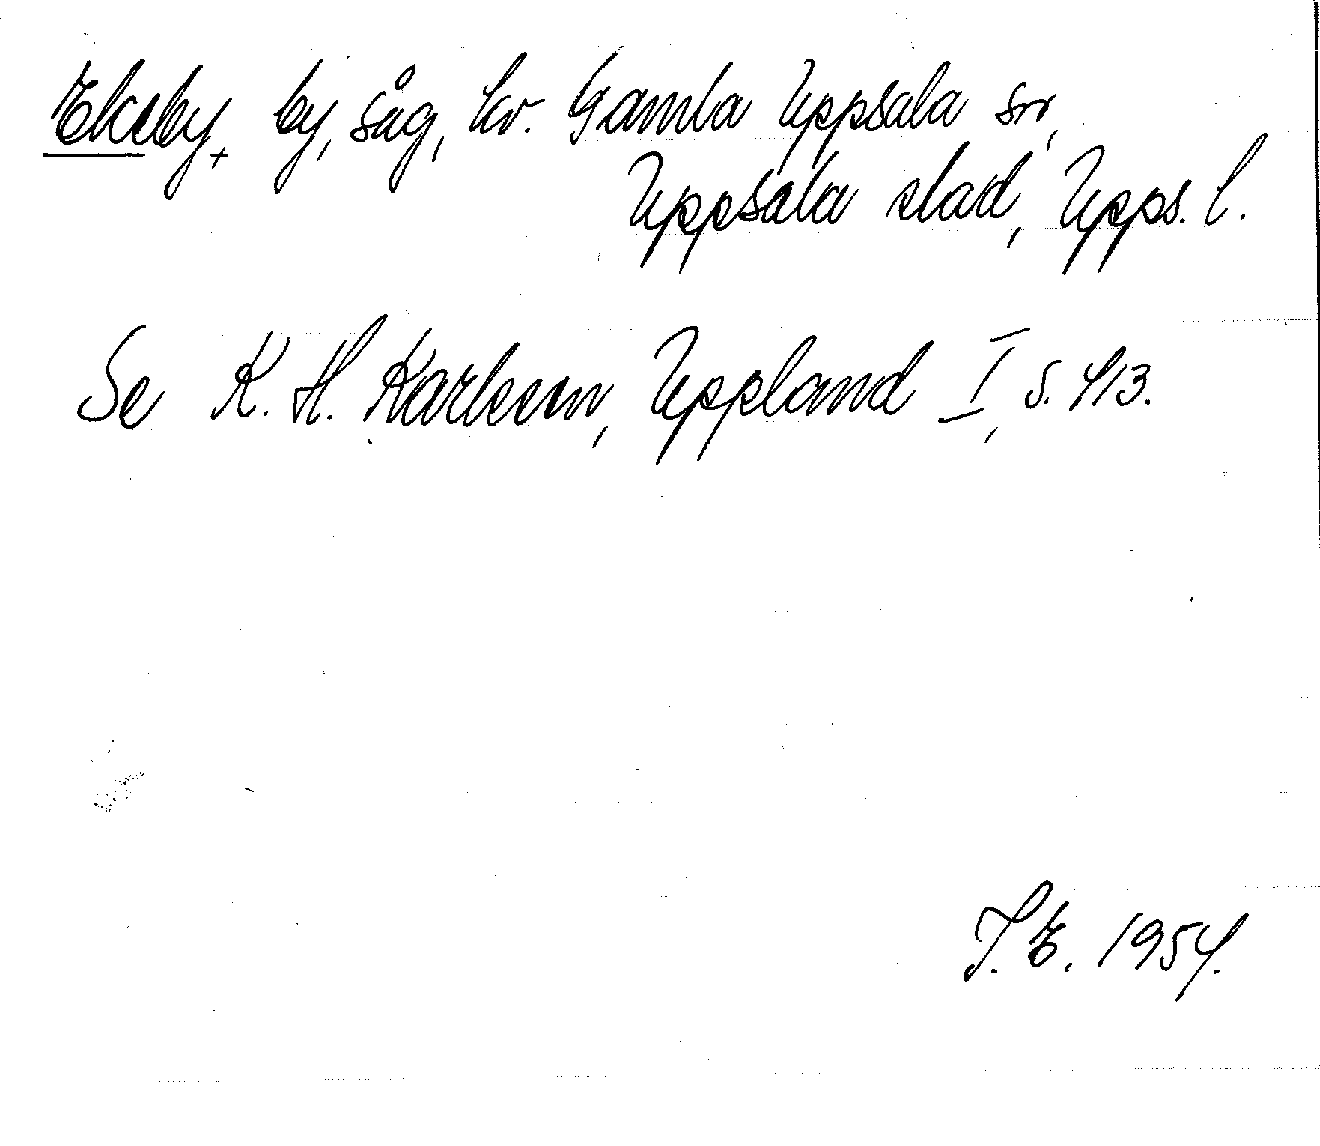 Ekeby, by, såg, kv. Gamla Uppsala sn,
Uppsala stad, Upps. l.
Se K. H. Karlsson, Uppland I, s. 413.
I. E. 1954.